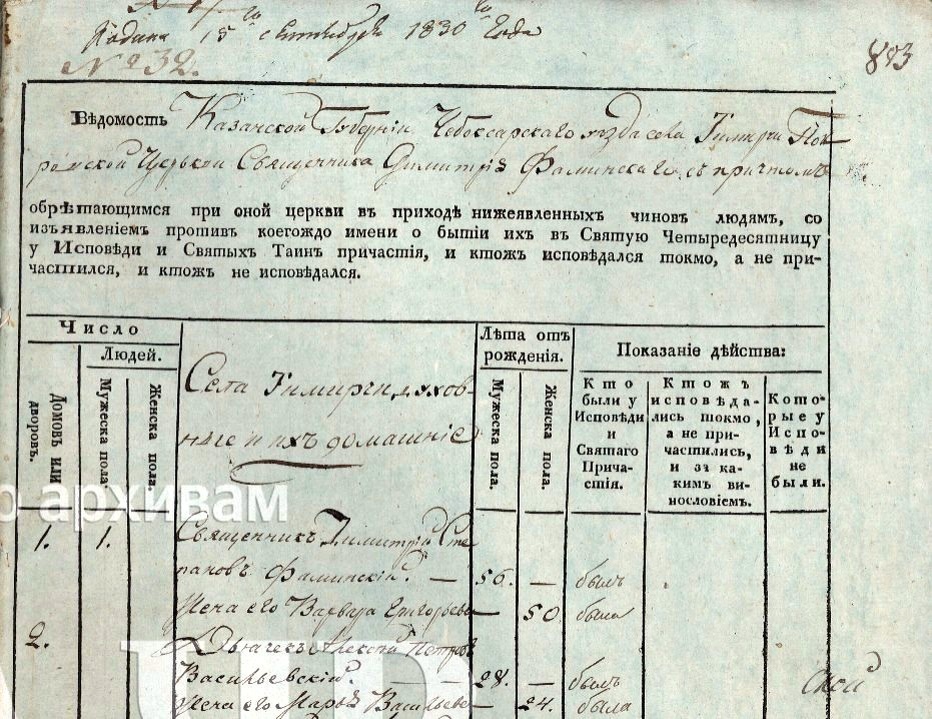 Подана 15го сентября 1830го Года
№ 32.
803
Вѣдомость Казанской Губерніи Чебоксарскаго уѣзда села Тимирчи Пок-
ровской Церькви Священника Димитрія Фаминскаго съ причтомъ
обрѣтающимся при оной церкви въ приходѣ нижеявленныхъ чиновъ людямъ, со
изъявленіемъ противъ коегождо имени о бытіи ихъ въ Святую Четыредесятницу
у Исповѣди и Святыхъ Таин причастія, и ктожъ исповѣдался токмо, а не при-
частился, и ктожъ не исповѣдался.
Число
Людей.
Домовъ или
дворовъ.
Мужеска пола.
Женска пола.
Села Тимирчи духов-
ные и ихъ домашніе
Лѣта отъ
рожденія.
Мужеска пола.
Женска пола.
Показаніе дѣйства:
Кто
были у
Исповѣди
и
Святаго
Прича-
стія.
Ктожъ
исповѣда-
лись токмо,
а не при-
частились,
и за ка-
кимъ ви-
нословіемъ.
Кото-
рые у
Испо-
вѣди
не
были.
о архивам
1. 1. Священникъ Димитрій Сте
пановъ Фаминскій. — 56. — былъ
Жена его Варвара Григорьева — 50 была
2. Дьячекъ Алексѣй Петровъ
Васильевскій. — — 28. — былъ
Жена его Марья Васильева — 24. была
ской